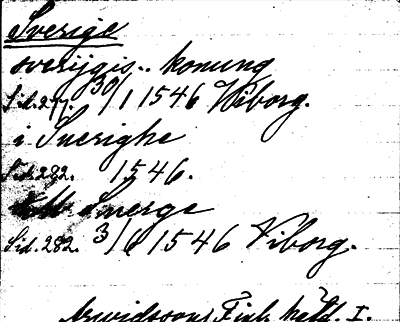 Sverige
sverijgis.. konung
Sid. 277. 30/1 1546 Wiborg.
i Suerighe
Sid. 282. 1546.
Suerge
Sid. 282. 3/6 1546 Viborg.
Arwidssons Finl. I.